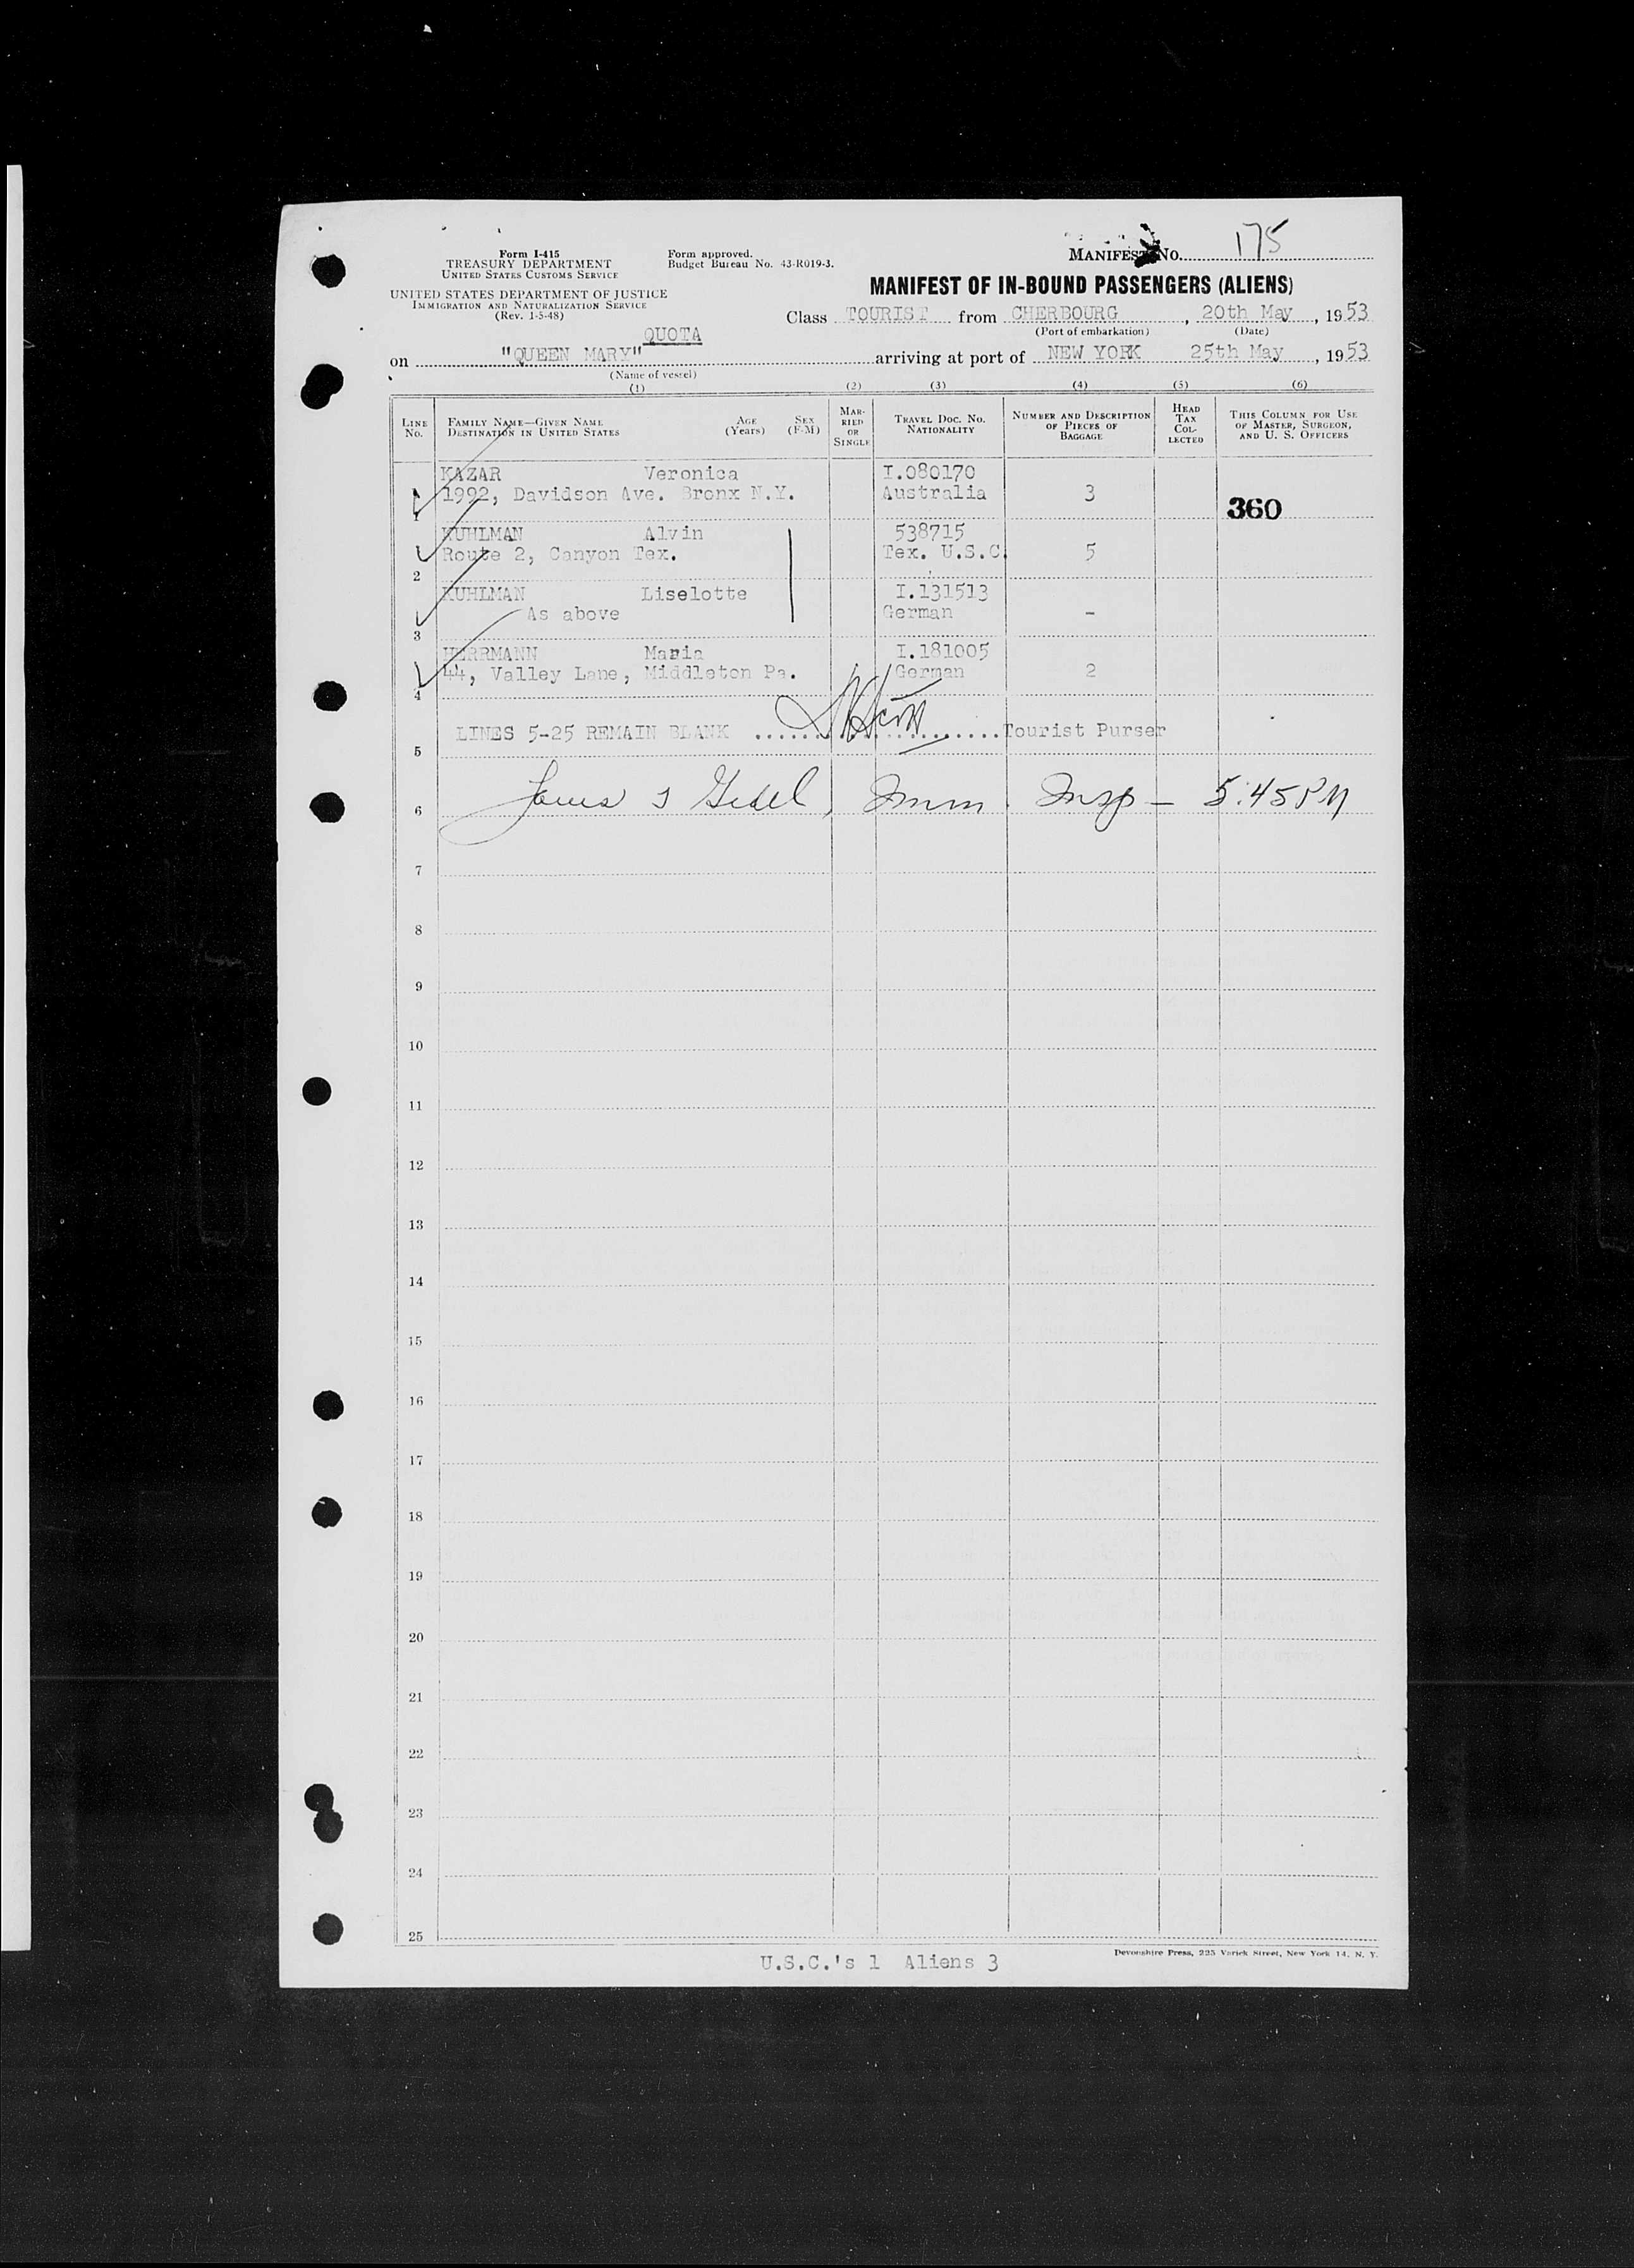 175
Form I-415
TREASURY DEPARTMENT
UNITED STATES CUSTOMS SERVICE
Form approved.
Budget Bureau No. 43-R019-3.
MANIFEST No.
UNITED STATES DEPARTMENT OF JUSTICE
IMMIGRATION AND NATURALIZATION SERVICE
(Rev. 1-5-48)
MANIFEST OF IN-BOUND PASSENGERS (ALIENS)
Class TOURIST from CHERBOURG, 20th May, 1953
(Port of embarkation) (Date)
QUOTA
on "QUEEN MARY" arriving at port of NEW YORK 25th May, 1953
(Name of vessel)
(1) (2) (3) (4) (5) (6)
LINE No.
FAMILY NAME—GIVEN NAME
DESTINATION IN UNITED STATES
AGE (Years)
SEX (F-M)
MARRIED OR SINGLE
TRAVEL DOC. No.
NATIONALITY
NUMBER AND DESCRIPTION
OF PIECES OF
BAGGAGE
HEAD TAX COLLECTED
THIS COLUMN FOR USE
OF MASTER, SURGEON,
AND U. S. OFFICERS
KAZAR Veronica I.080170
1992, Davidson Ave. Bronx N.Y. Australia 3
1 360
KUHLMAN Alvin 538715
Route 2, Canyon Tex. Tex. U.S.C. 5
2
KUHLMAN Liselotte I.131513
As above German -
3
HERRMANN Maria I.181005
44, Valley Lane, Middleton Pa. German 2
4
LINES 5-25 REMAIN BLANK Tourist Purser
5
Imm. Insp — 5:45 PM
6
7
8
9
10
11
12
13
14
15
16
17
18
19
20
21
22
23
24
25
U.S.C.'s 1 Aliens 3
Devonshire Press, 225 Varick Street, New York 14, N. Y.